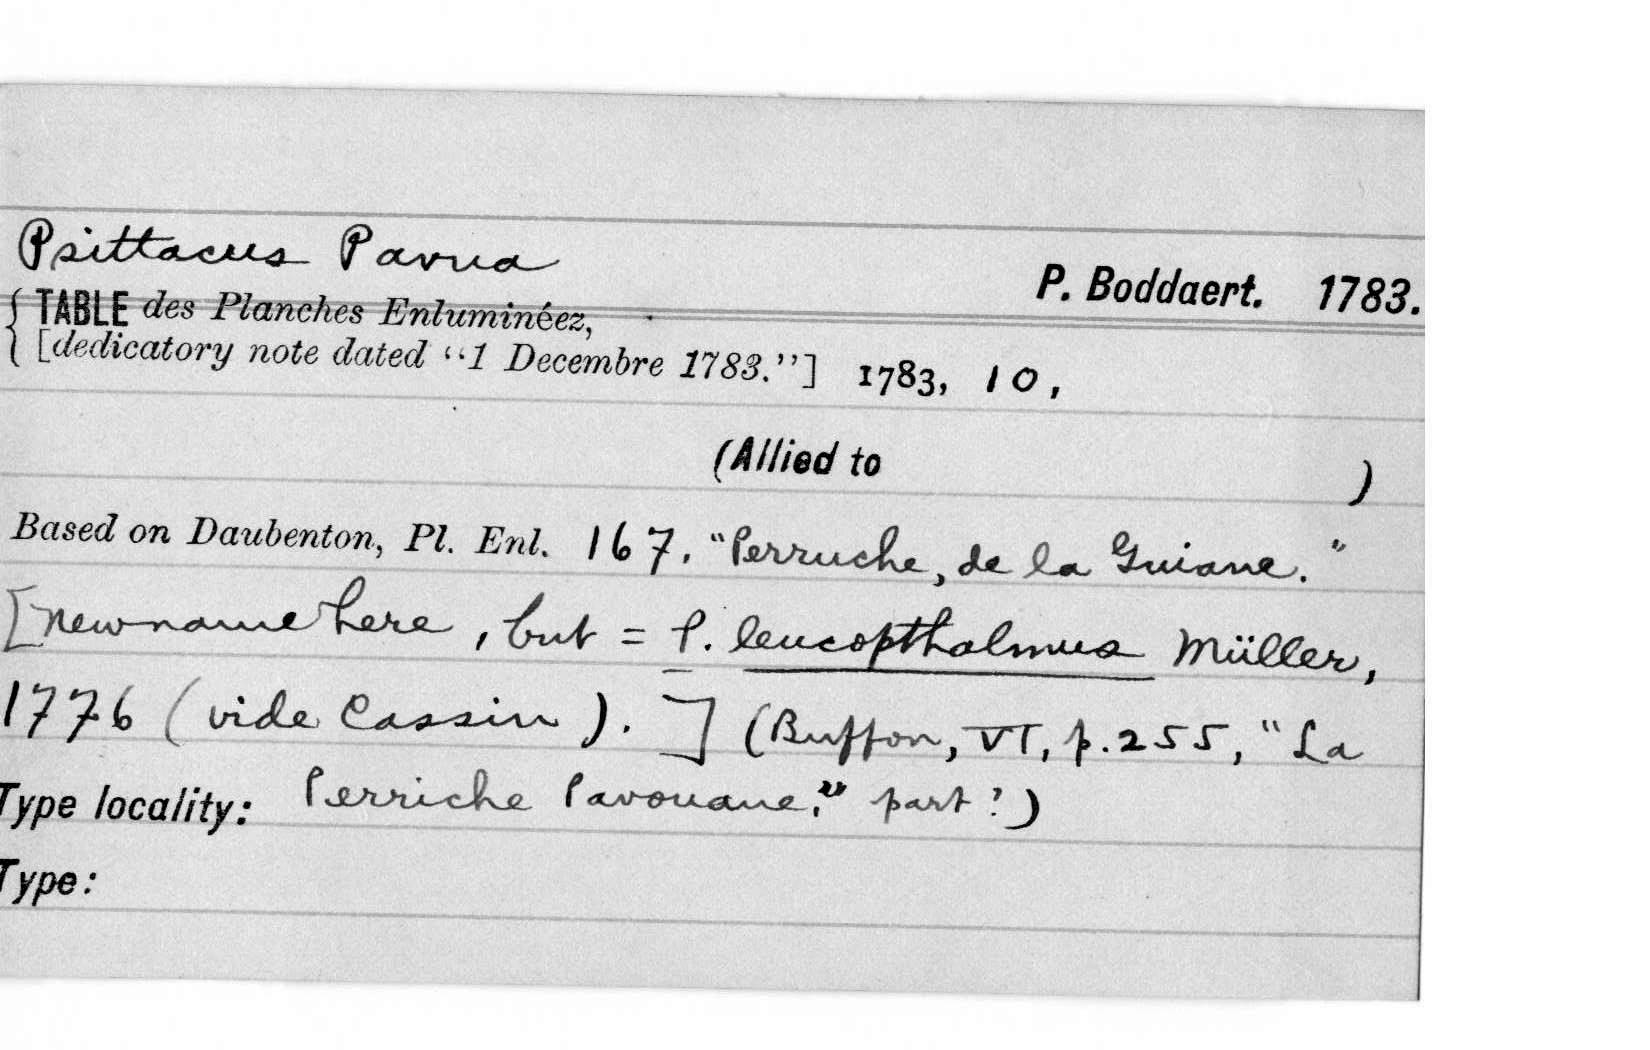 Psittacus Pavua
P. Boddaert. 1783.
{ TABLE des Planches Enluminéez,
[dedicatory note dated “1 Decembre 1783.”] 1783, 10,
(Allied to )
Based on Daubenton, Pl. Enl. 167. "Perruche, de la Guiane."
[New name here, but = P. leucopthalmus Müller,
1776 (vide Cassin). ] (Buffon, VI, p. 255, "La
Type locality: Perriche Pavouane." part?)
Type: